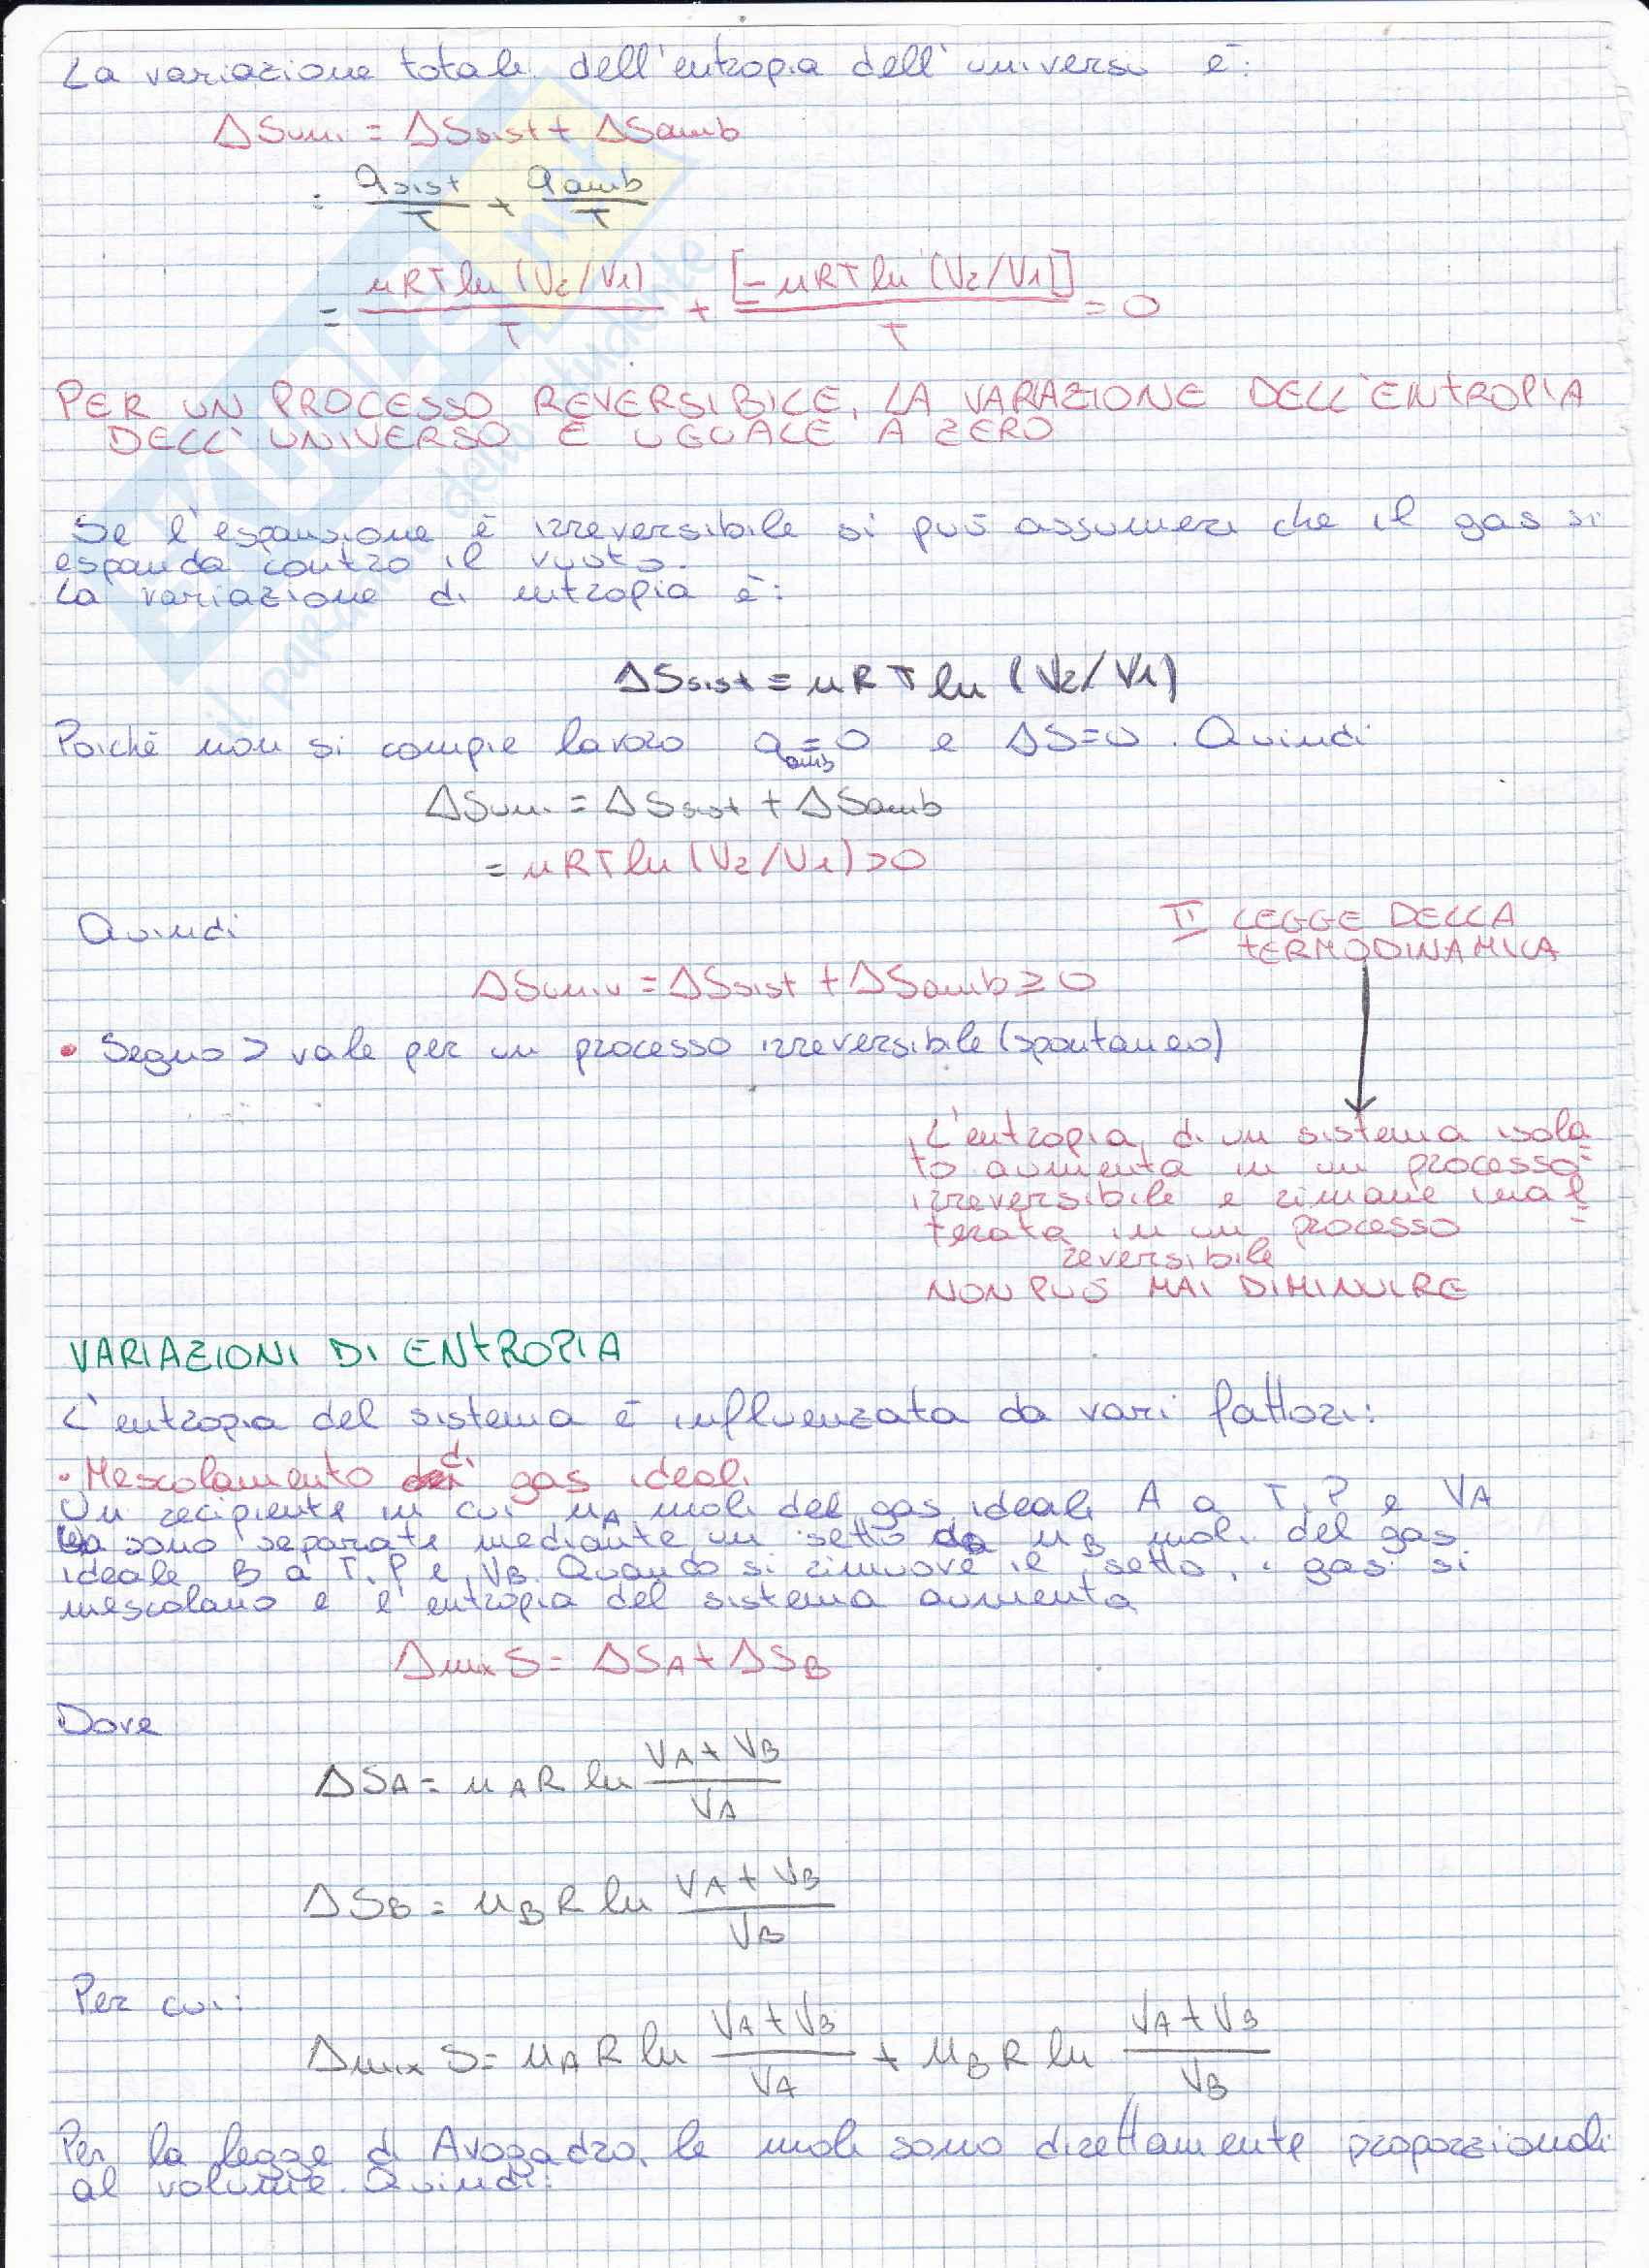 La variazione totale dell'entropia dell'universo è:
ΔSuni = ΔSsist + ΔSamb
= qsist/T + qamb/T
= nRT ln (V2/V1)/T + [-nRT ln (V2/V1)]/T = 0
PER UN PROCESSO REVERSIBILE, LA VARIAZIONE DELL'ENTROPIA
DELL'UNIVERSO È UGUALE A ZERO
Se l'espansione è irreversibile si può assumere che il gas si
espanda contro il vuoto.
La variazione di entropia è:
ΔSsist = nRT ln (V2/V1)
Poiché non si compie lavoro qamb = 0 e ΔS=0. Quindi
ΔSuni = ΔSsist + ΔSamb
= nRT ln (V2/V1) > 0
Quindi
II LEGGE DELLA
TERMODINAMICA
ΔSuniv = ΔSsist + ΔSamb ≥ 0
• Segno > vale per un processo irreversibile (spontaneo)
L'entropia di un sistema isola
to aumenta in un processo
irreversibile e rimane inal
terata in un processo
reversibile
NON PUÒ MAI DIMINUIRE
VARIAZIONI DI ENTROPIA
L'entropia del sistema è influenzata da vari fattori:
• Mescolamento di gas ideali
Un recipiente in cui nA moli del gas ideale A a T, P e VA
sono separate mediante un setto da nB moli del gas
ideale B a T, P e VB. Quando si rimuove il setto, i gas si
mescolano e l'entropia del sistema aumenta
Δmix S = ΔSA + ΔSB
Dove
ΔSA = nAR ln (VA + VB)/VA
ΔSB = nBR ln (VA + VB)/VB
Per cui:
Δmix S = nAR ln (VA + VB)/VA + nBR ln (VA + VB)/VB
Per la legge di Avogadro, le moli sono direttamente proporzionali
al volume. Quindi: